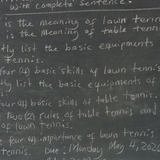 complete sentence.
is the meaning of lawn tennis
is the meaning of table tennis
list the basic equipments
tennis.
four (4) basic skills of lawn tennis
list the basic equipments of
four (4) basic skills of table tennis.
two (2) rules of table tennis and
of lawn tennis.
four (4) importance of lawn tennis
tennis. Due: Monday May 4, 202